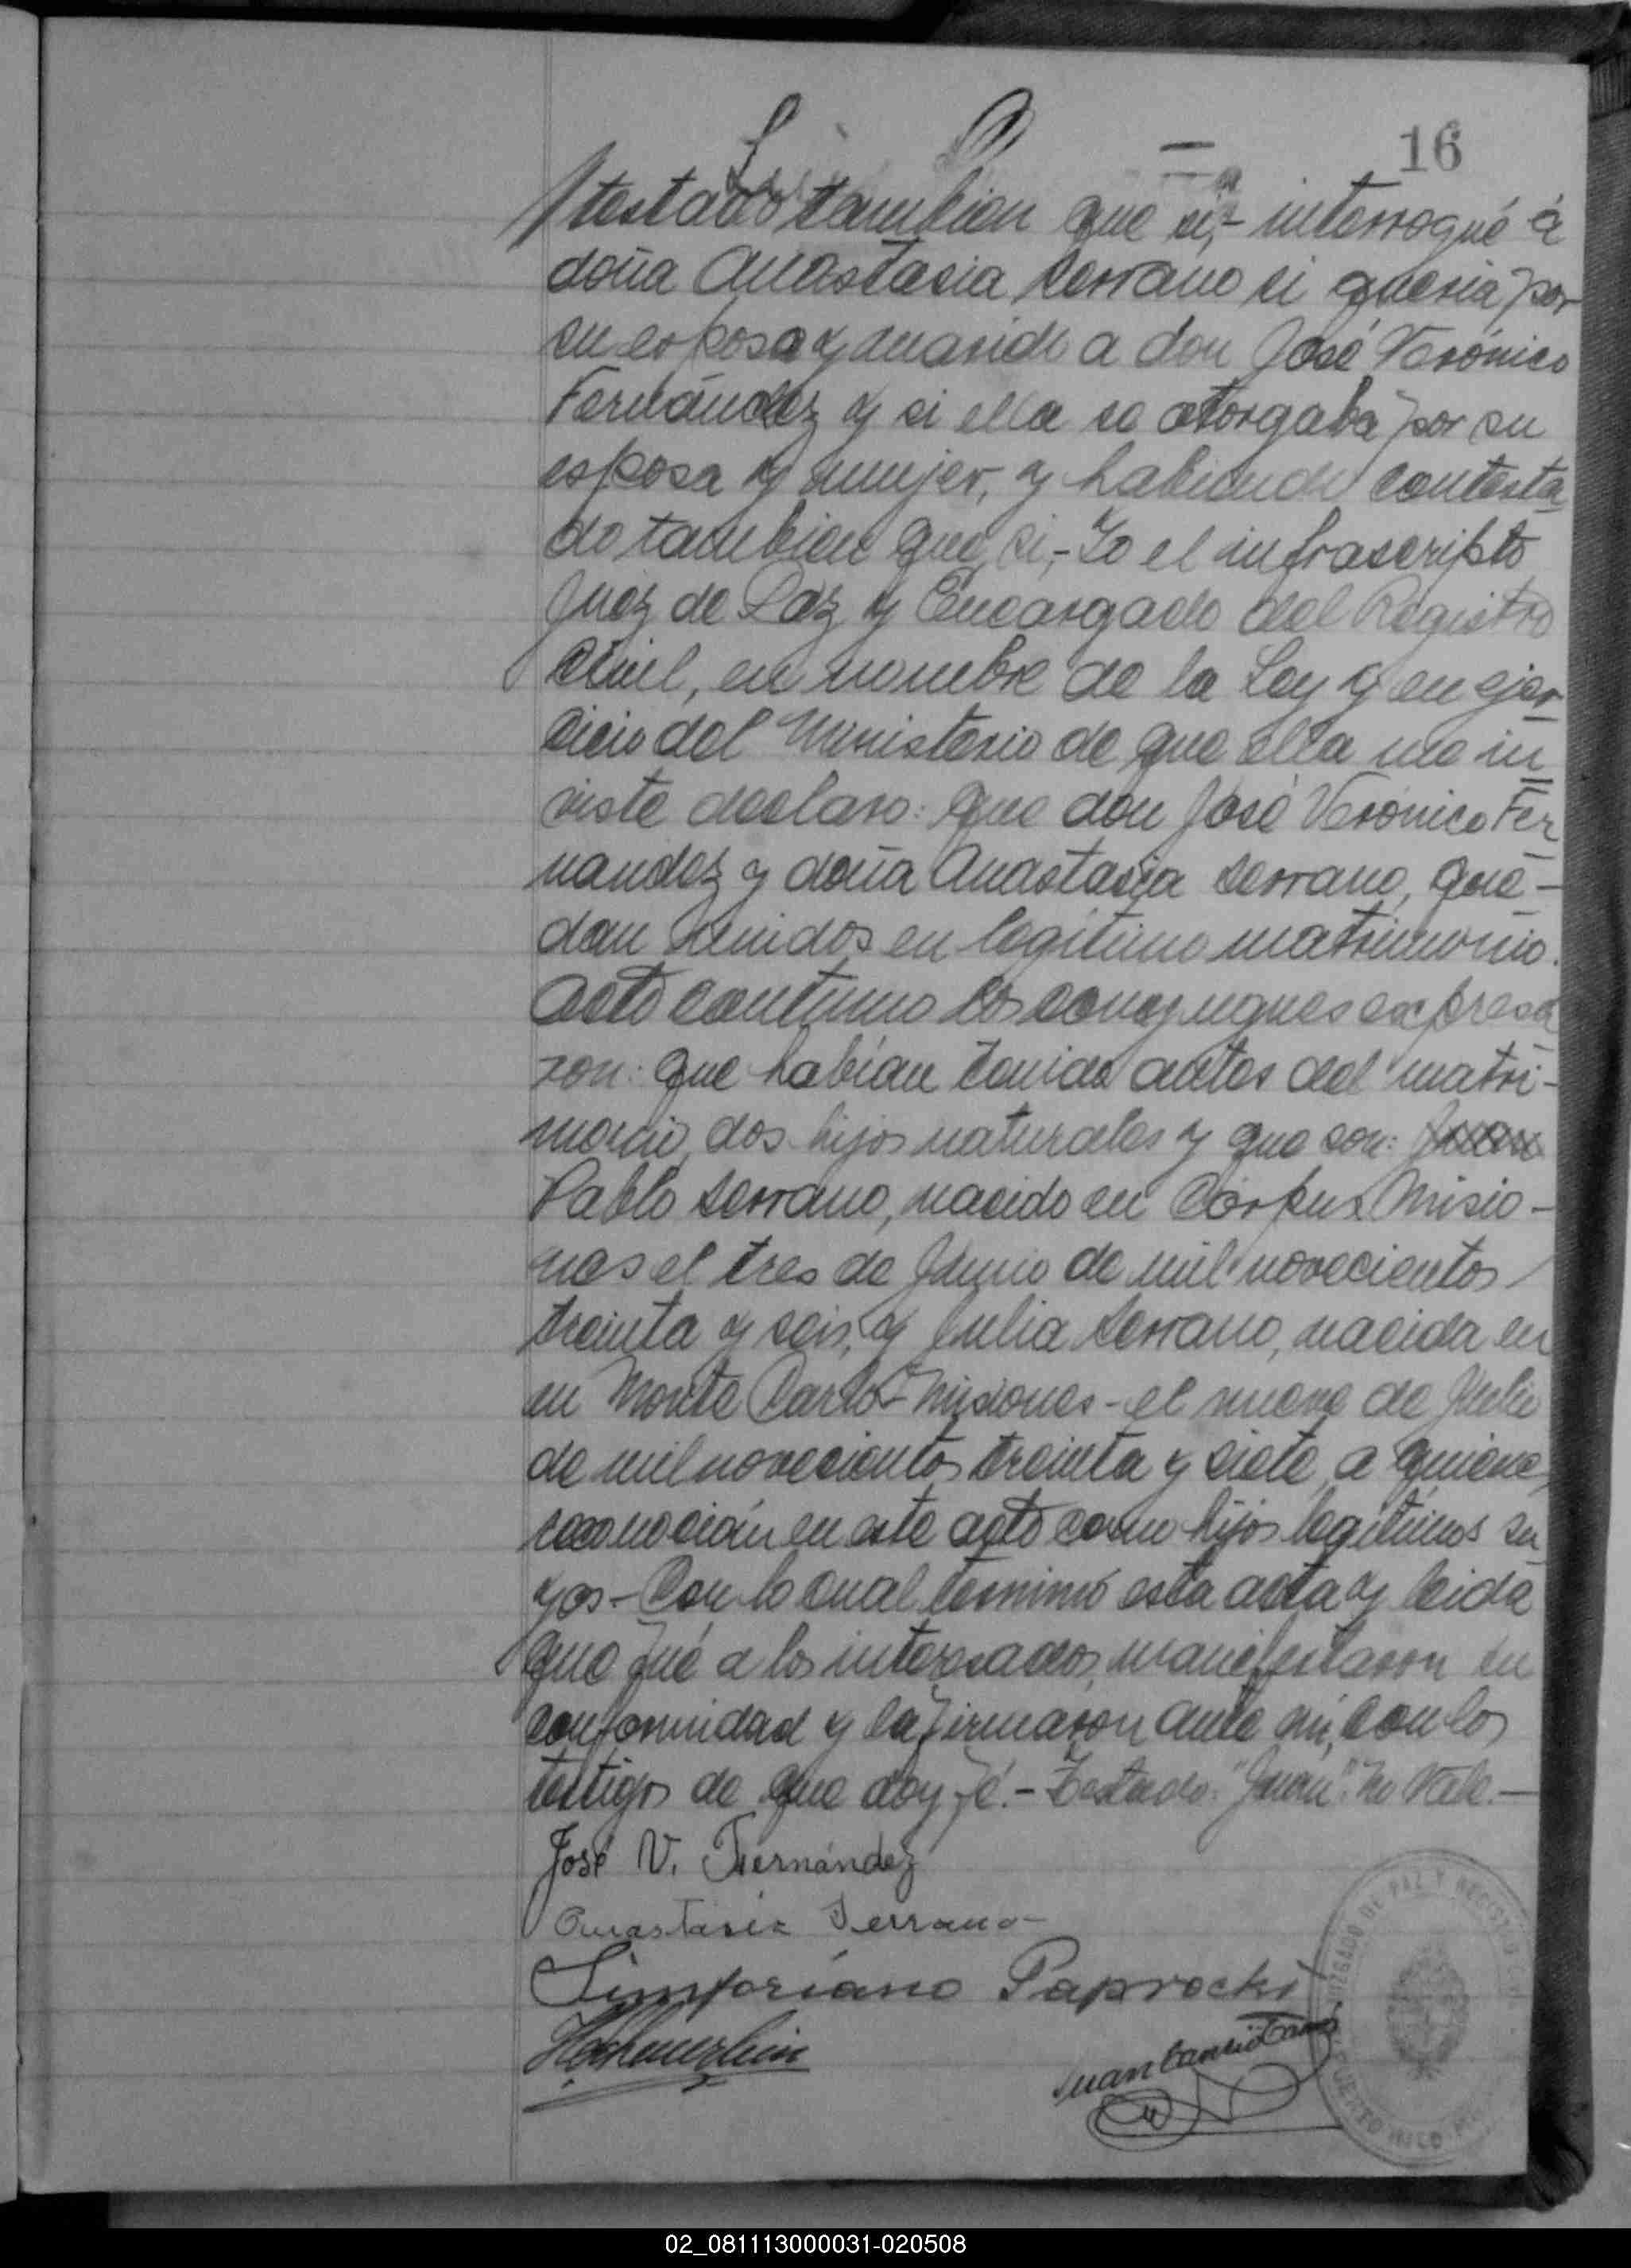 16
testado tambien que si,- interrogué á
doña Anastasia Serrano si queria por
su esposo y marido a don José Verónico
Fernández y si ella se otorgaba por su
esposa y mujer, y habiendo contesta
do tambien que si,- Yo el infrascripto
Juez de Paz y Encargado del Registro
Civil, en nombre de la Ley y en ejer
cicio del Ministerio de que ella me in
viste declaro: que don José Verónico Fer
nandez y doña Anastasia Serrano, que-
dan unidos en legítimo matrimonio.
Acto continuo los conyugues expresa
ron: que habían tenido antes del matri-
monio, dos hijos naturales y que son: Juan
Pablo Serrano, nacido en Corpus Misio-
nes el tres de Junio de mil novecientos
treinta y seis, y Julia Serrano, nacida en
en Monte Carlo-Misiones- el nueve de Julio
de mil novecientos treinta y siete, a quienes
reconocían en este acto como hijos legítimos su
yos.- Con lo cual terminó esta acta y leida
que fué a los interesados, manifestaron su
conformidad y la firmaron ante mi, con los
testigos de que doy fé.- Testado: "Juan": No Vale.-
José V. Fernández
Anastasia Serrano-
Simforiano Paprocki
Juan
JUZGADO DE PAZ Y REGISTRO CIVIL
PUERTO RICO
02_081113000031-020508